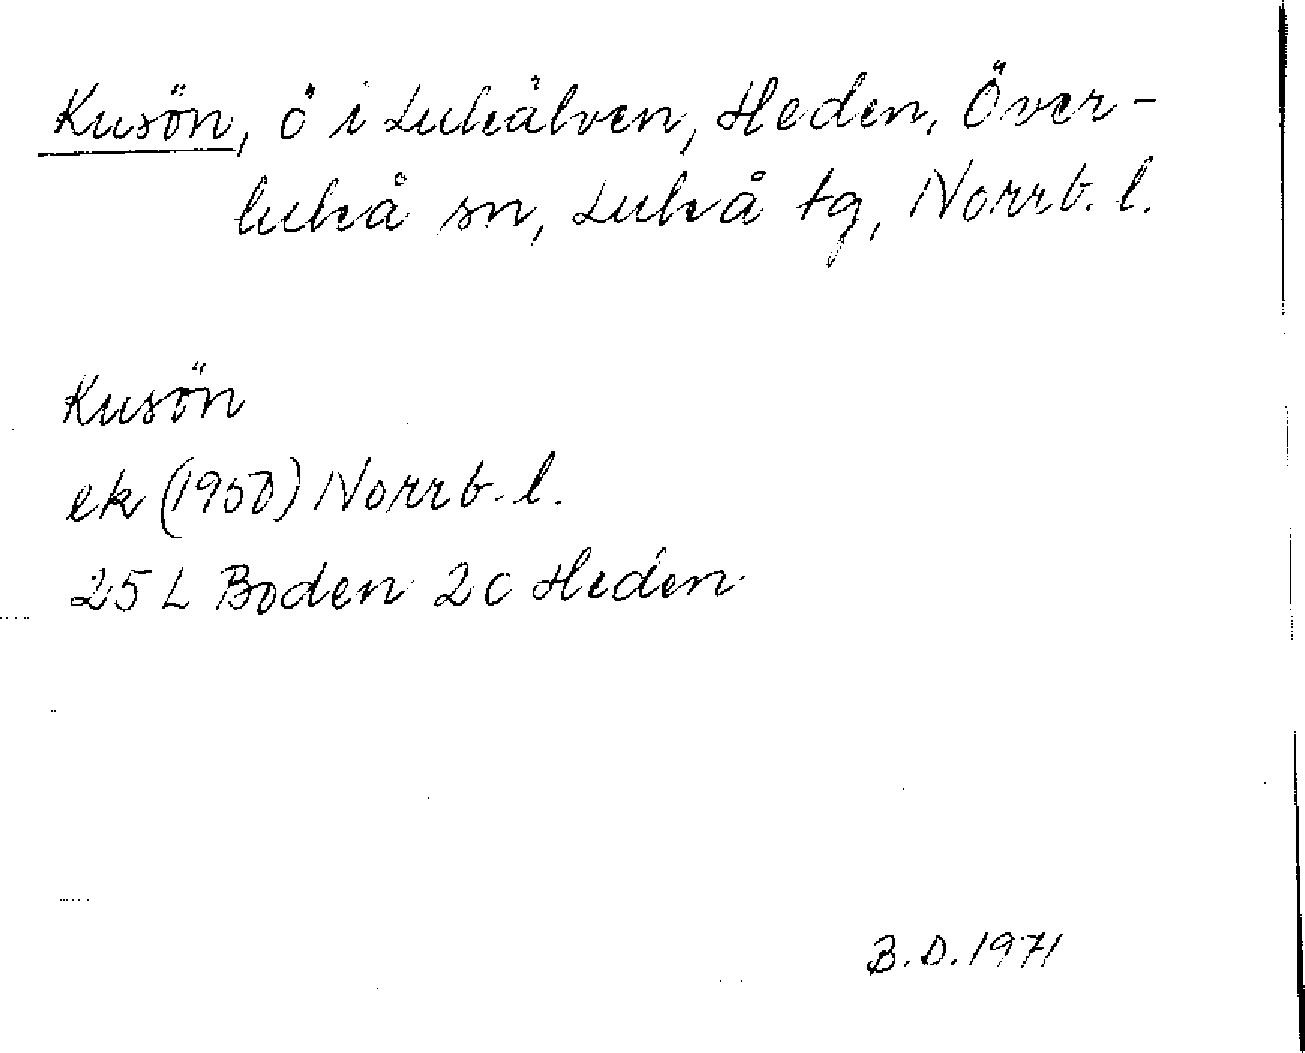 Kusön, ö i Luleälven, Heden, Över-
luleå sn, Luleå tg, Norrb. l.
Kusön
ek (1950) Norrb. l.
25 L Boden 2c Heden
B.D. 1971